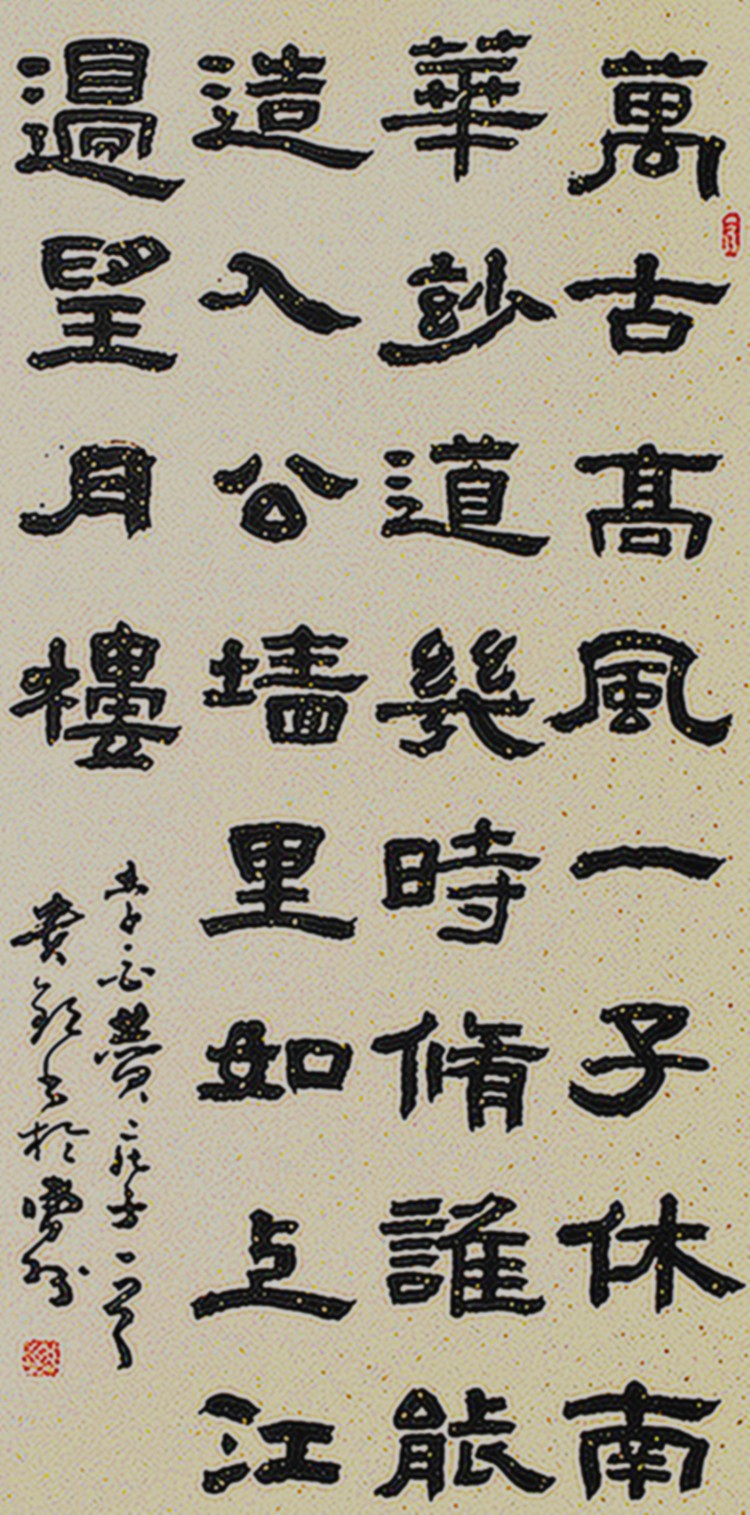 萬古髙風一子休南
華妙道幾時脩誰能
造入公墙里如上江
邊望月樓
於曹州